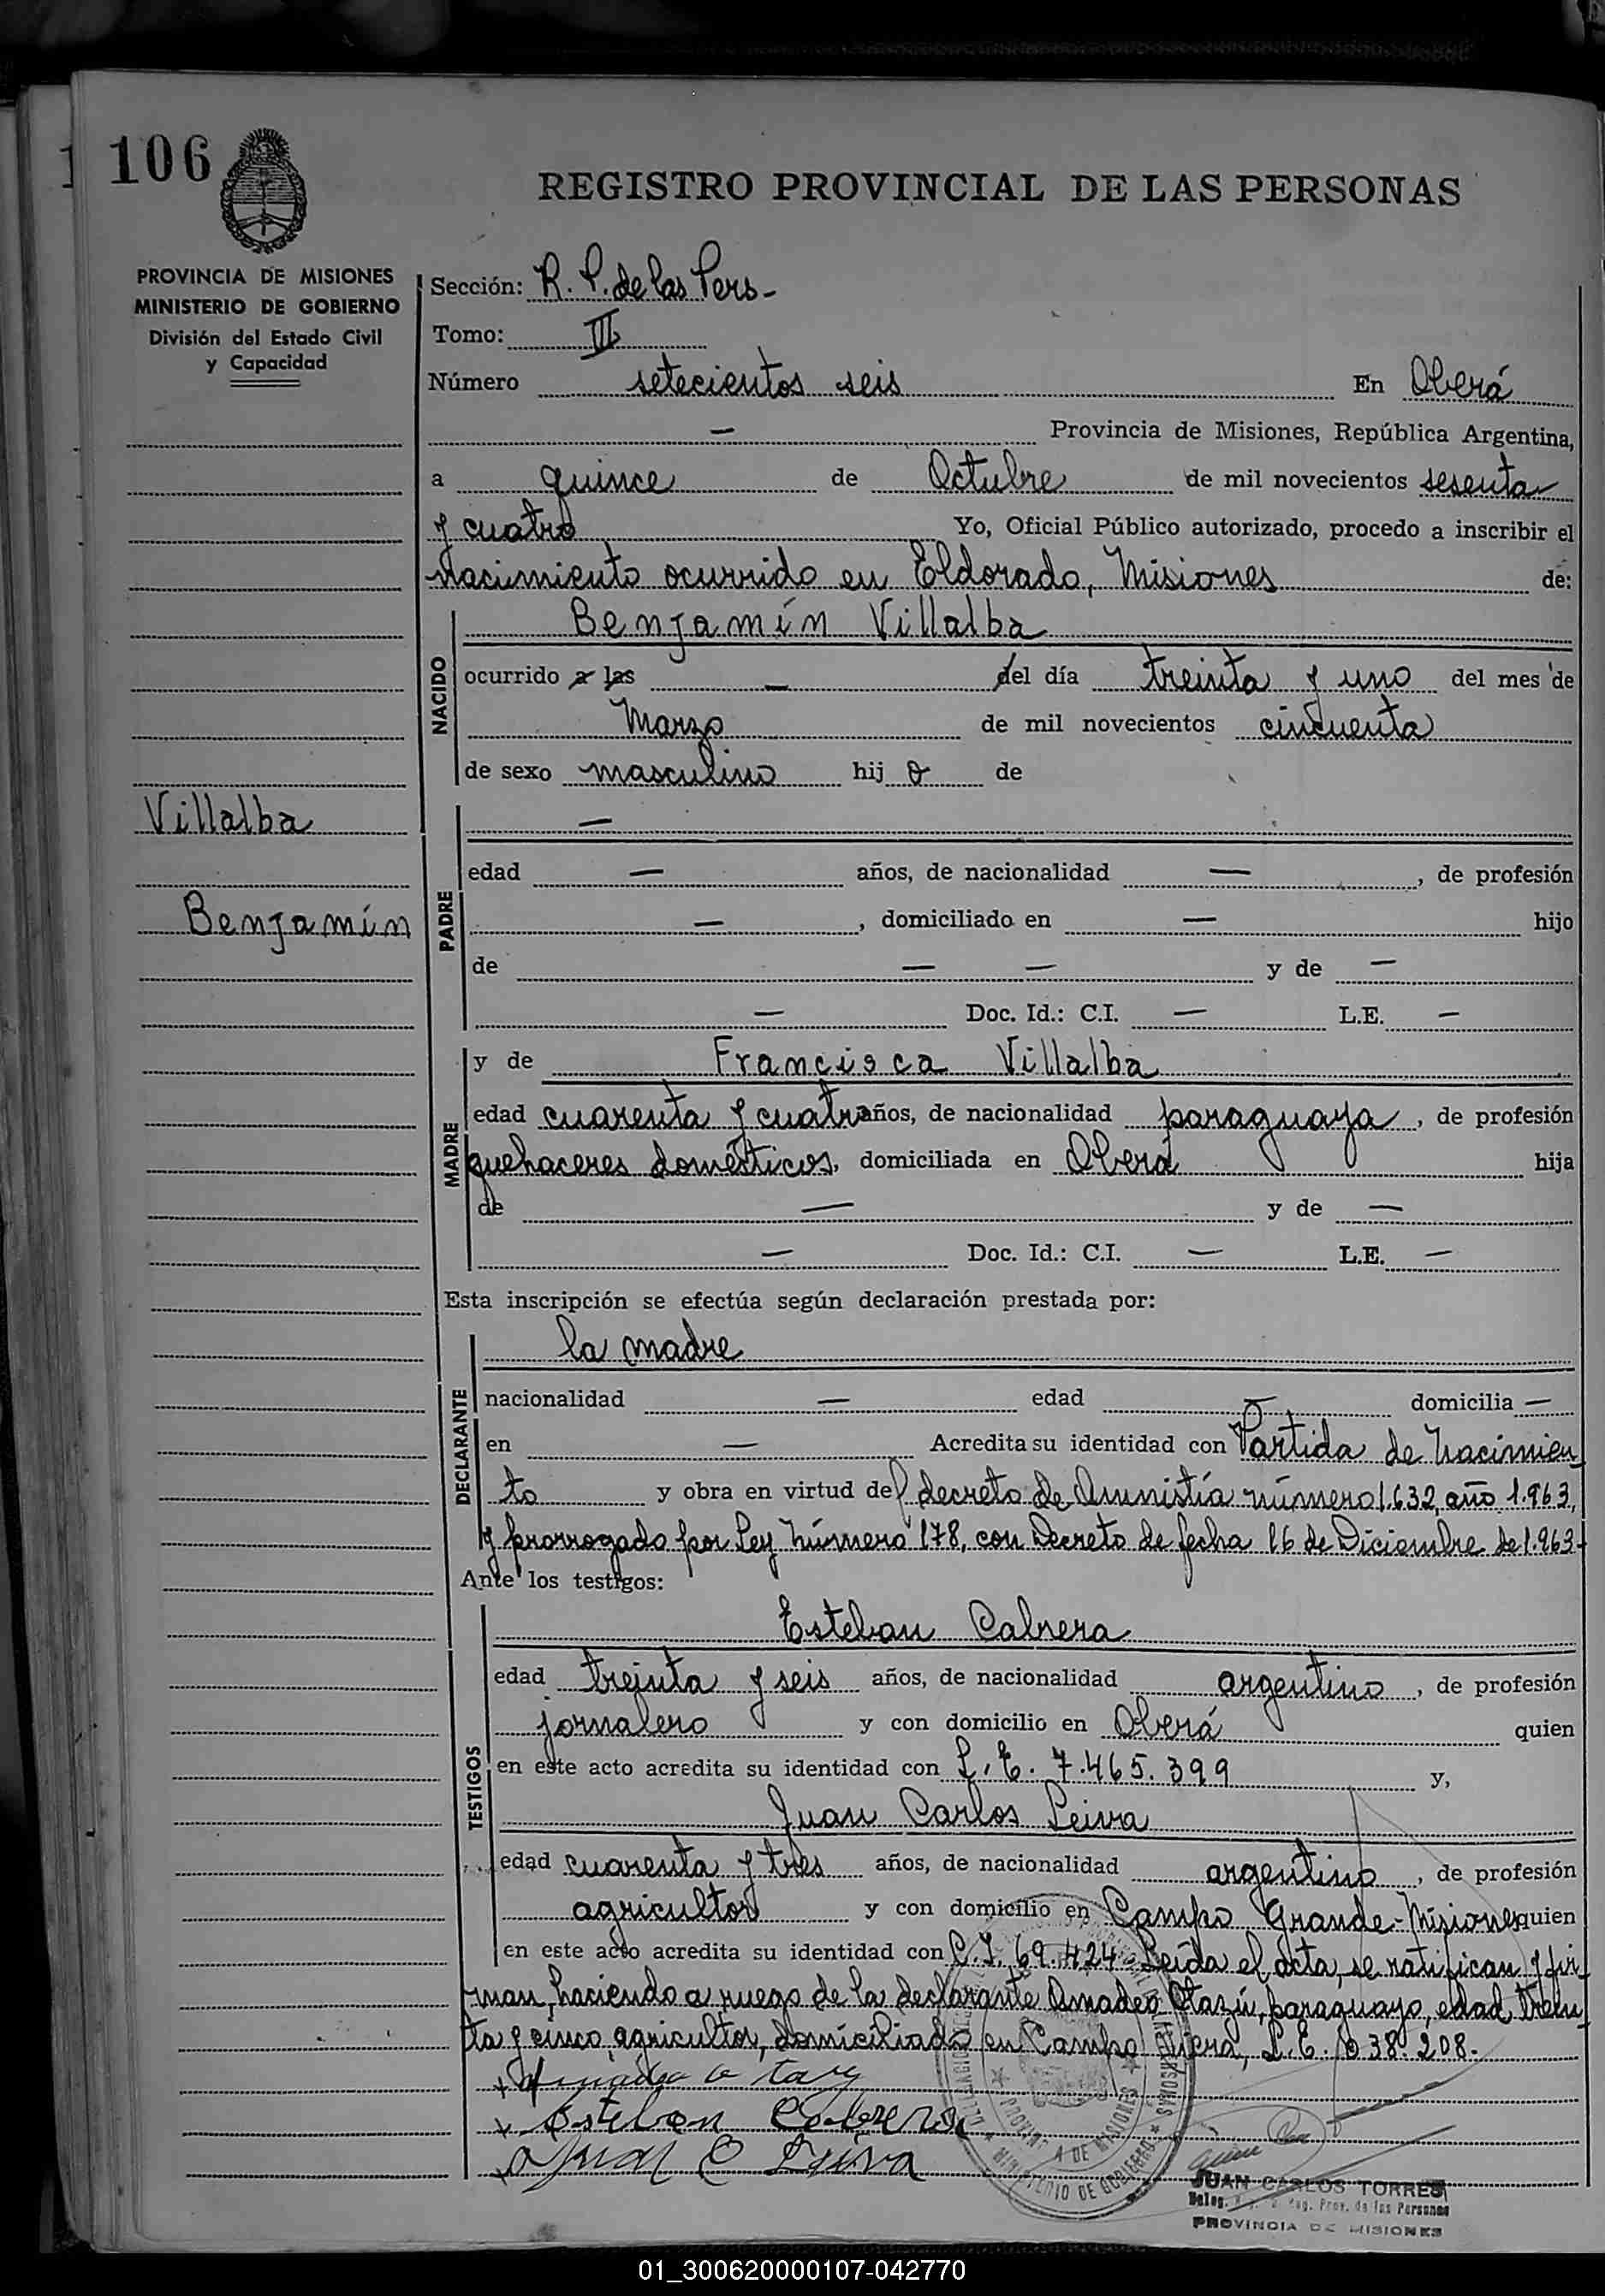 106
REGISTRO PROVINCIAL DE LAS PERSONAS
PROVINCIA DE MISIONES
MINISTERIO DE GOBIERNO
División del Estado Civil
y Capacidad
Sección: R. P. de las Pers-
Tomo: III
Número setecientos seis En Oberá
— Provincia de Misiones, República Argentina,
a quince de Octubre de mil novecientos sesenta
y cuatro Yo, Oficial Público autorizado, procedo a inscribir el
nacimiento ocurrido en Eldorado, Misiones de:
NACIDO
Benjamín Villalba
ocurrido a las — del día treinta y uno del mes de
Marzo de mil novecientos cincuenta
de sexo masculino hij o de
Villalba
Benjamín
PADRE
—
edad — años, de nacionalidad — , de profesión
— , domiciliado en — hijo
de — — y de —
— Doc. Id.: C.I. — L.E. —
MADRE
y de Francisca Villalba
edad cuarenta y cuatro años, de nacionalidad paraguaya , de profesión
quehaceres domésticos, domiciliada en Oberá hija
de — y de —
— Doc. Id.: C.I. — L.E. —
Esta inscripción se efectúa según declaración prestada por:
DECLARANTE
la madre
nacionalidad — edad — domicilia —
en — Acredita su identidad con Partida de Nacimien
to y obra en virtud del decreto de Amnistía número 1.632, año 1.963,
y prorrogado por Ley Número 178, con Decreto de fecha 16 de Diciembre de 1.963-
Ante los testigos:
TESTIGOS
Esteban Cabrera
edad treinta y seis años, de nacionalidad argentino , de profesión
jornalero y con domicilio en Oberá quien
en este acto acredita su identidad con L. E. 7.465.399 y,
Juan Carlos Leiva
edad cuarenta y tres años, de nacionalidad argentino , de profesión
agricultor y con domicilio en Campo Grande-Misiones quien
en este acto acredita su identidad con C.I. 69.424 Leída el acta, se ratifican y fir
man, haciendo a ruego de la declarante Amadeo Otazú, paraguayo, edad trein
ta y cinco, agricultor, domiciliado en Campo Viera, L. E. 038.208.
Esteban Cabrera
Juan C Leiva
PROVINCIA DE MISIONES
MINISTERIO DE GOBIERNO
JUAN CARLOS TORRES
Reg. Prov. de las Personas
PROVINCIA DE MISIONES
01_300620000107-042770